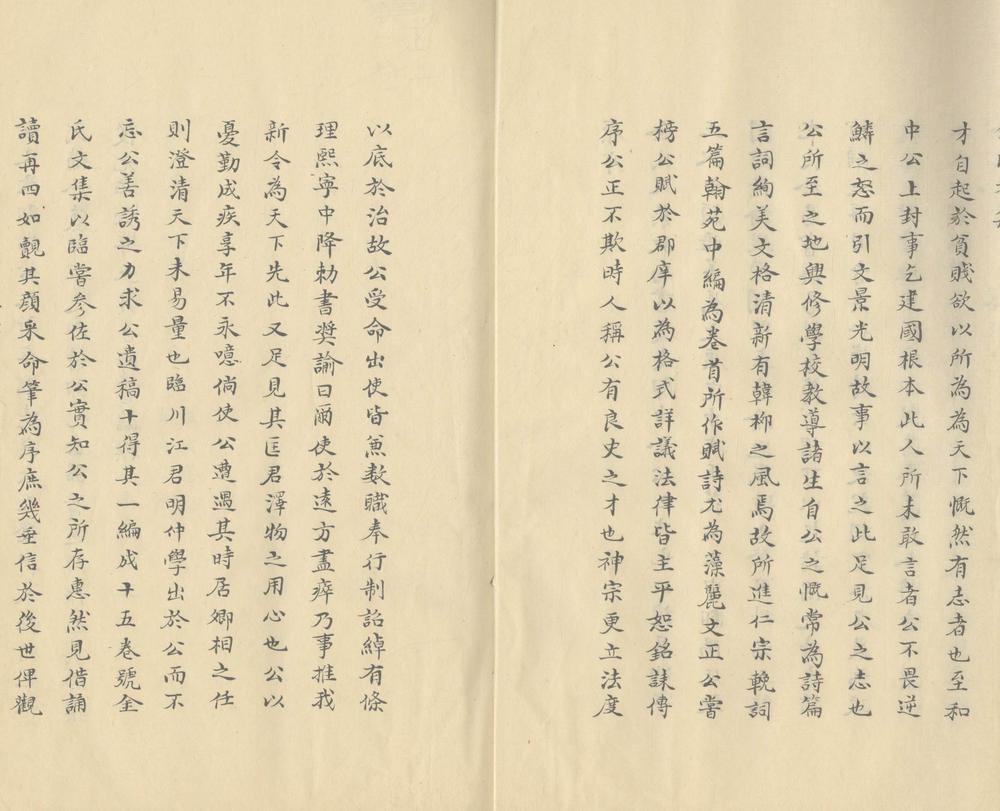 才自起於貧賤欲以所為為天下慨然有志者也至和
中公上封事乞建國根本此人所未敢言者公不畏逆
鱗之怒而引文景光明故事以言之此足見公之志也
公所至之地興修學校教導諸生自公之慨常為詩篇
言詞絢美文格清新有韓柳之風焉故所進仁宗輓詞
五篇翰苑中編為卷首所作賦詩尤為藻麗文正公嘗
榜公賦於郡庠以為格式詳議法律皆主平恕銘誄傳
序公正不欺時人稱公有良史之才也神宗更立法度
以底於治故公受命出使皆兼数職奉行制詔綽有條
理熙寧中降勅書奨諭曰爾使於遠方盡瘁乃事推我
新令為天下先此又足見其匡君澤物之用心也公以
憂勤成疾享年不永噫倘使公遭遇其時居卿相之任
則澄清天下未易量也臨川江君明仲學出於公而不
忘公善誘之力求公遺稿十得其一編成十五卷號全
氏文集以臨嘗参佐於公實知公之所存惠然見借誦
讀再四如覿其顔采命筆為序庶幾垂信於後世俾觀